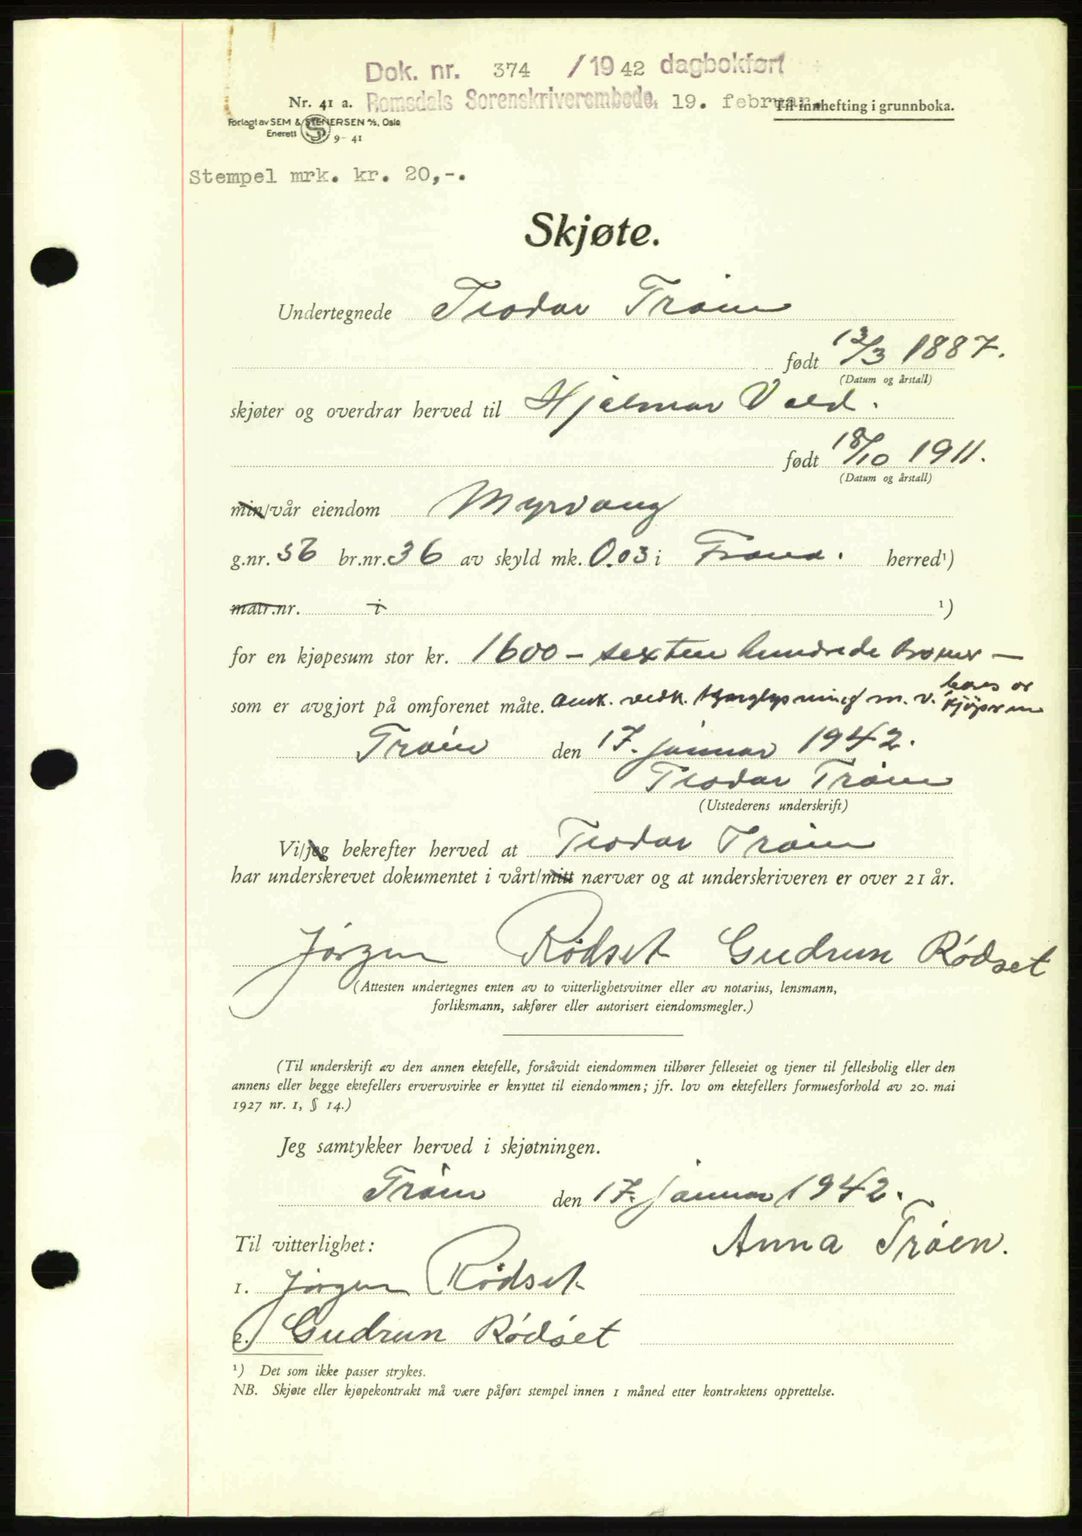 Dok. nr. 374 /1942 dagbokført
Nr. 41 a. Romsdals Sorenskriverembede, 19. februar. Til innhefting i grunnboka.
Forlagt av SEM & STENERSEN A/S, Oslo
Enerett S 9 - 41
Stempel mrk. kr. 20,-.
Skjøte.
Undertegnede Teodor Trøen
født 13/3 1887.
(Datum og årstall)
skjøter og overdrar herved til Hjalmar Vold.
født 18/10 1911.
(Datum og årstall)
min/vår eiendom Myrvang
g.nr. 56 br.nr. 36 av skyld mk. 0.03 i Fræna. herred¹)
matr.nr. i ¹)
for en kjøpesum stor kr. 1600 – sexten hundrede kroner –
som er avgjort på omforenet måte. m. v. kjøperen
Trøen den 17. januar 1942.
Teodor Trøen
(Utstederens underskrift)
Vi/jeg bekrefter herved at Teodor Trøen
har underskrevet dokumentet i vårt/mitt nærvær og at underskriveren er over 21 år.
Jørgen Rødset Gudrun Rødset
(Attesten undertegnes enten av to vitterlighetsvitner eller av notarius, lensmann,
forliksmann, sakfører eller autorisert eiendomsmegler.)
(Til underskrift av den annen ektefelle, forsåvidt eiendommen tilhører felleseiet og tjener til fellesbolig eller den
annens eller begge ektefellers ervervsvirke er knyttet til eiendommen; jfr. lov om ektefellers formuesforhold av 20. mai
1927 nr. 1, § 14.)
Jeg samtykker herved i skjøtningen.
Trøen den 17. januar 1942.
Til vitterlighet: Anna Trøen.
1. Jørgen Rødset
2. Gudrun Rødset
¹) Det som ikke passer strykes.
NB. Skjøte eller kjøpekontrakt må være påført stempel innen 1 måned etter kontraktens opprettelse.